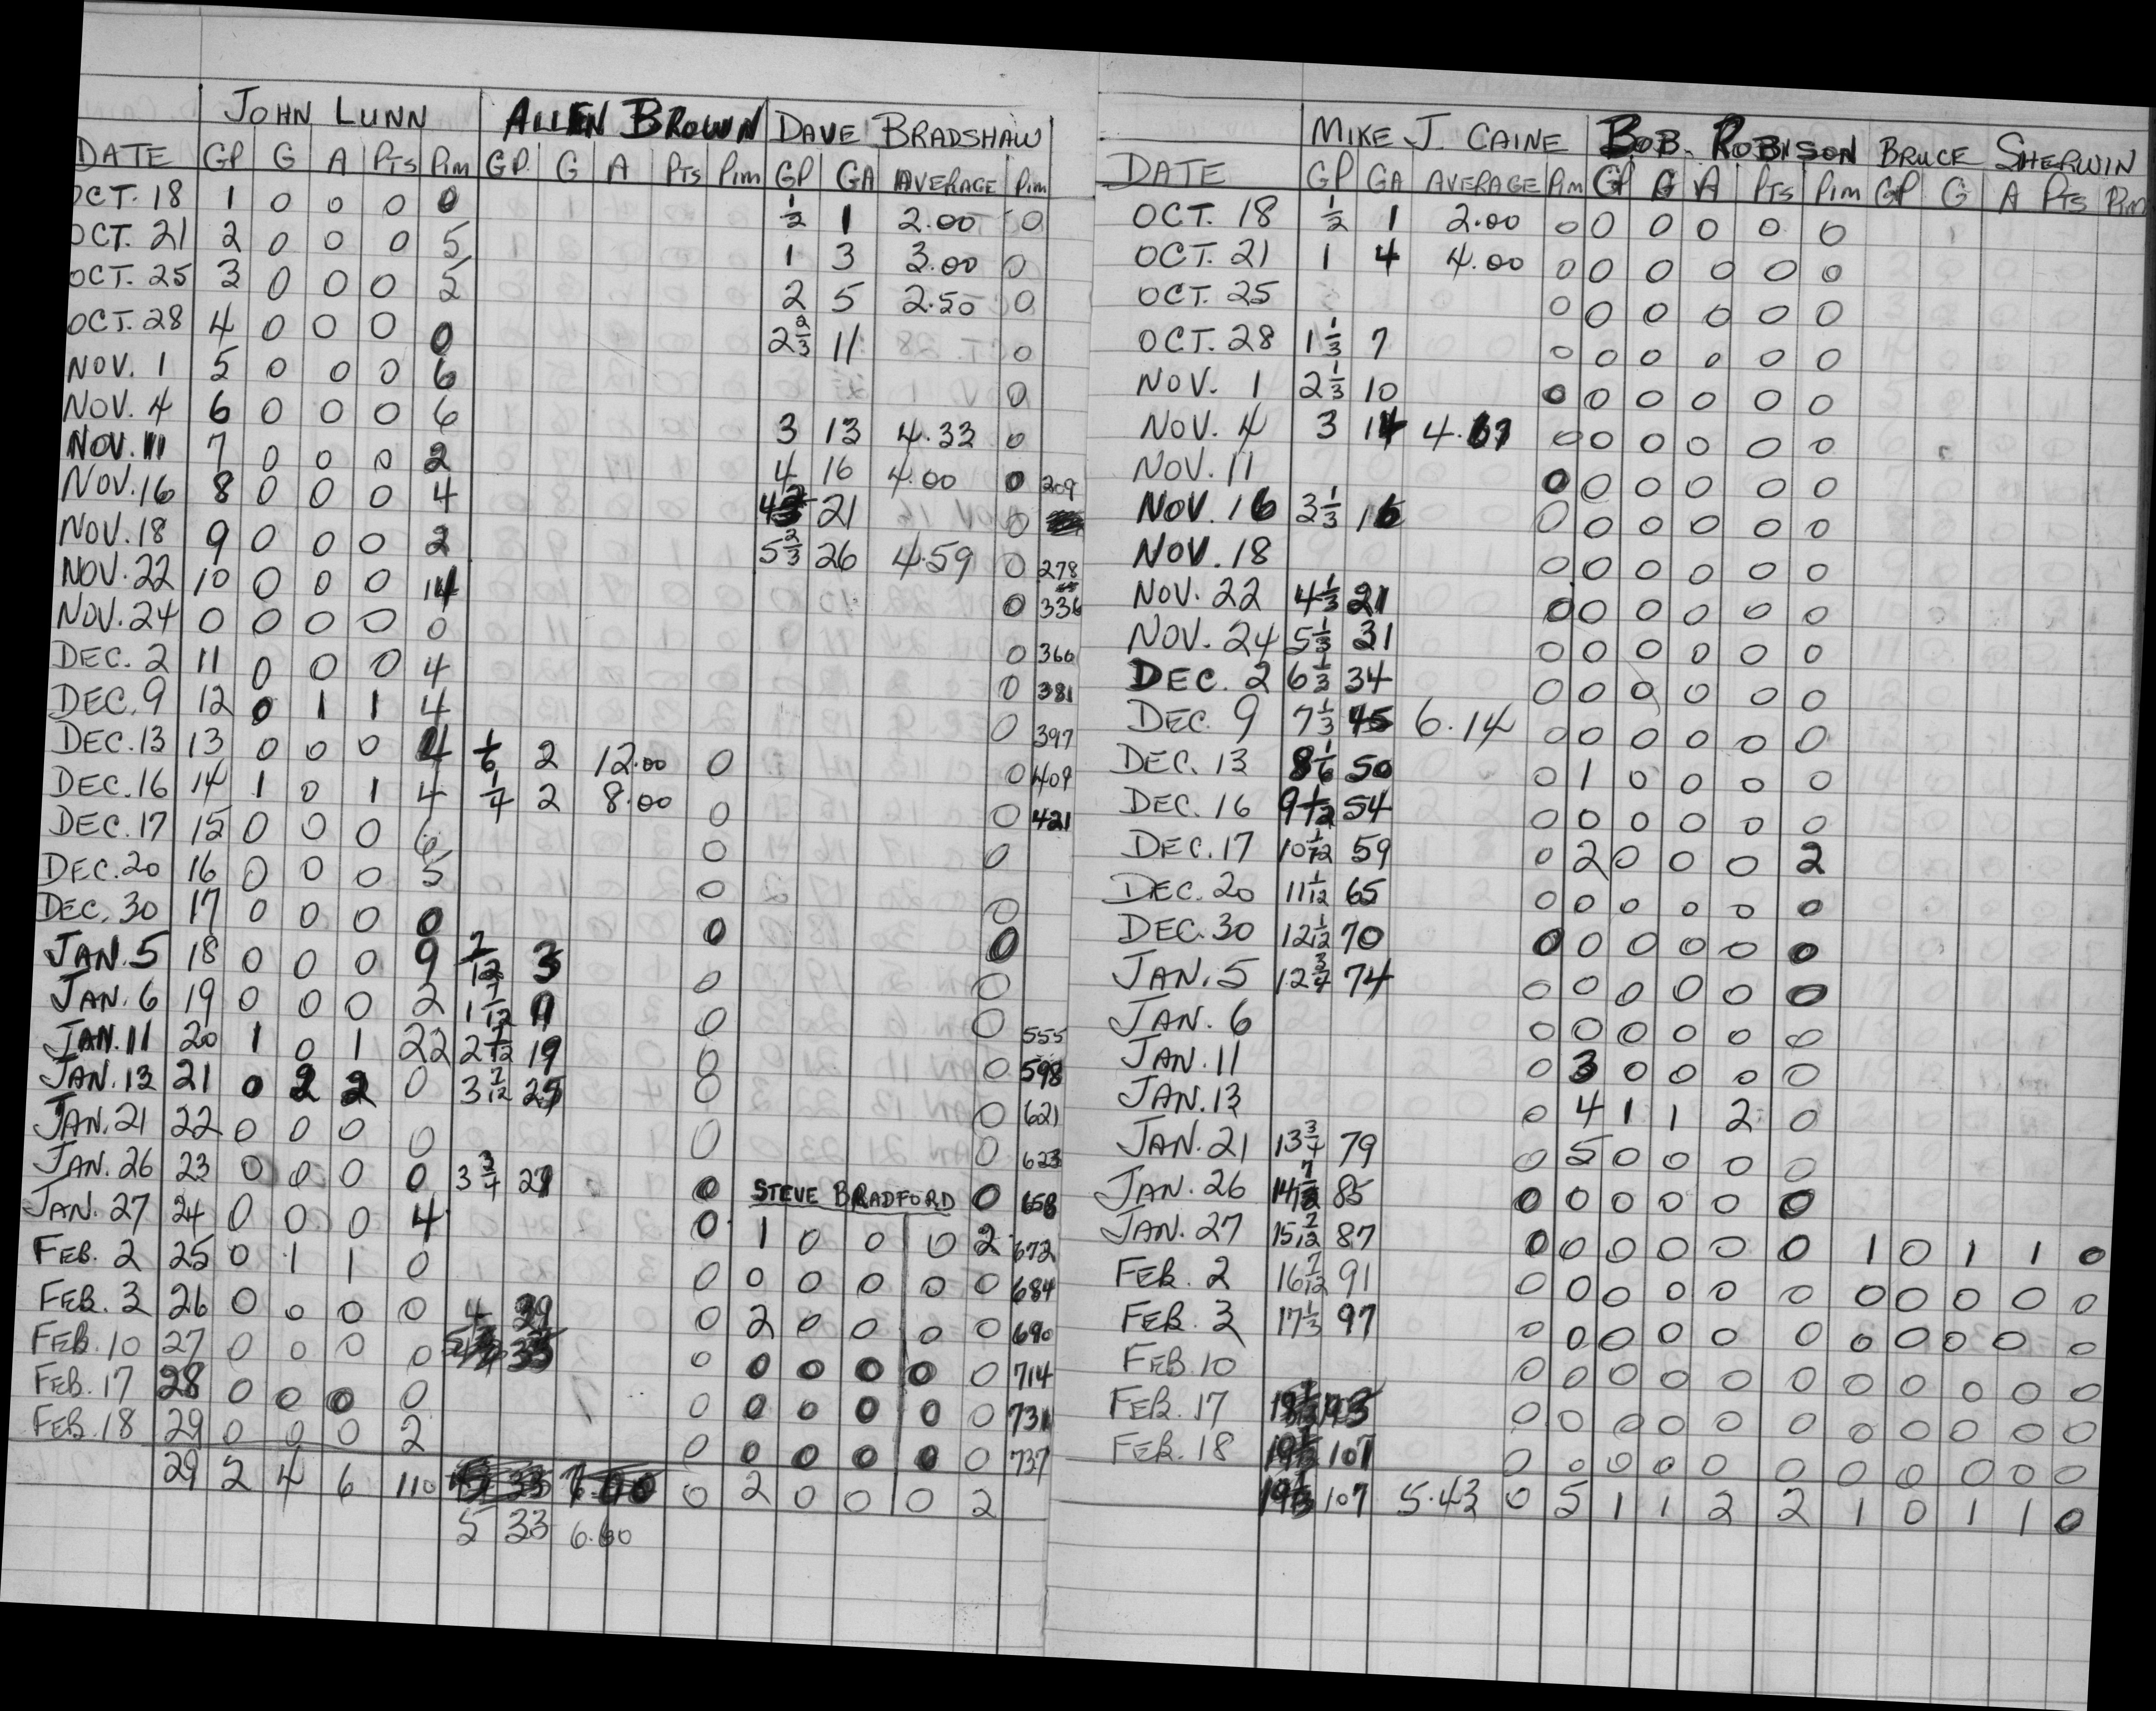 JOHN LUNN ALLEN BROWN DAVE BRADSHAW
DATE GP G A PTS Pim GP. G A PTS Pim GP GA AVERAGE Pim
OCT. 18 1 0 0 0 0 ½ 1 2.00 0
OCT. 21 2 0 0 0 5 1 3 3.00 0
OCT. 25 3 0 0 0 2 5 2.50 0
OCT. 28 4 0 0 0 0 2⅔ 11 0
NOV. 1 5 0 0 0 6 0
NOV. 4 6 0 0 0 6 3 13 4.33 0
NOV. 11 7 0 0 0 2 4 16 4.00 0 209
NOV. 16 8 0 0 0 4 21 0
NOV. 18 9 0 0 0 2 5⅔ 26 4.59 0 278
NOV. 22 10 0 0 0 14 0 336
NOV. 24 0 0 0 0 0 0 366
DEC. 2 11 0 0 0 4 0 381
DEC. 9 12 0 1 1 4 0 397
DEC. 13 13 0 0 0 4 1/6 2 12.00 0 0 409
DEC. 16 14 1 0 1 4 ¼ 2 8.00 0 0 421
DEC. 17 15 0 0 0 6 0 0
DEC. 20 16 0 0 0 5 0 0
DEC. 30 17 0 0 0 0 0 0
JAN. 5 18 0 0 0 9 7/12 3 0 0
JAN. 6 19 0 0 0 2 1 7/12 11 0 0 555
JAN. 11 20 1 0 1 22 2 7/12 19 0 0 598
JAN. 13 21 0 2 2 0 3 7/12 25 0 0 621
JAN. 21 22 0 0 0 0 0 0 623
JAN. 26 23 0 0 0 0 3¾ 27 0 STEVE BRADFORD 0 658
JAN. 27 24 0 0 0 4 0 1 0 0 0 2 672
FEB. 2 25 0 1 1 0 0 0 0 0 0 0 684
FEB. 3 26 0 0 0 0 4 29 0 2 0 0 0 0 690
FEB. 10 27 0 0 0 0 33 0 0 0 0 0 0 714
FEB. 17 28 0 0 0 0 0 0 0 0 0 0 731
FEB. 18 29 0 0 0 2 0 0 0 0 0 0 737
29 2 4 6 110 33 0 2 0 0 0 2
5 33 6.60
MIKE J. CAINE BOB. ROBISON BRUCE SHERWIN
DATE GP GA AVERAGE Pim GP G A PTS Pim GP G A PTS Pim
OCT. 18 ½ 1 2.00 0 0 0 0 0 0
OCT. 21 1 4 4.00 0 0 0 0 0 0
OCT. 25 0 0 0 0 0 0
OCT. 28 1⅓ 7 0 0 0 0 0 0
NOV. 1 2⅓ 10 0 0 0 0 0 0
NOV. 4 3 14 4.67 0 0 0 0 0 0
NOV. 11 0 0 0 0 0 0
NOV. 16 3⅓ 16 0 0 0 0 0 0
NOV. 18 0 0 0 0 0 0
NOV. 22 4⅓ 21 0 0 0 0 0 0
NOV. 24 5⅓ 31 0 0 0 0 0 0
DEC. 2 6⅓ 34 0 0 0 0 0 0
DEC. 9 7⅓ 45 6.14 0 0 0 0 0 0
DEC. 13 8 1/6 50 0 1 0 0 0 0
DEC. 16 9 1/12 54 0 0 0 0 0 0
DEC. 17 10 1/12 59 0 2 0 0 0 2
DEC. 20 11 1/12 65 0 0 0 0 0 0
DEC. 30 12 1/12 70 0 0 0 0 0 0
JAN. 5 12¾ 74 0 0 0 0 0 0
JAN. 6 0 0 0 0 0 0
JAN. 11 0 3 0 0 0 0
JAN. 13 0 4 1 1 2 0
JAN. 21 13¾ 79 0 5 0 0 0 0
JAN. 26 14 7/12 85 0 0 0 0 0 0
JAN. 27 15 7/12 87 0 0 0 0 0 0 1 0 1 1 0
FEB. 2 16 7/12 91 0 0 0 0 0 0 0 0 0 0 0
FEB. 3 17⅓ 97 0 0 0 0 0 0 0 0 0 0 0
FEB. 10 0 0 0 0 0 0 0 0 0 0 0
FEB. 17 0 0 0 0 0 0 0 0 0 0 0
FEB. 18 107 0 0 0 0 0 0 0 0 0 0 0
107 5.43 0 5 1 1 2 2 1 0 1 1 0